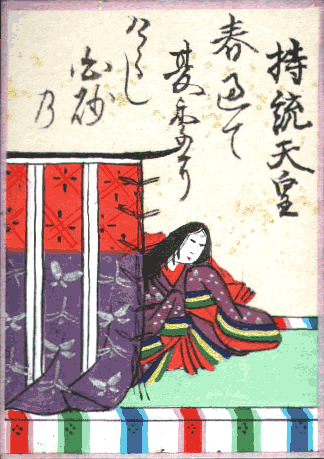 持統天皇
春過て
夏来に
けらし
白砂
乃